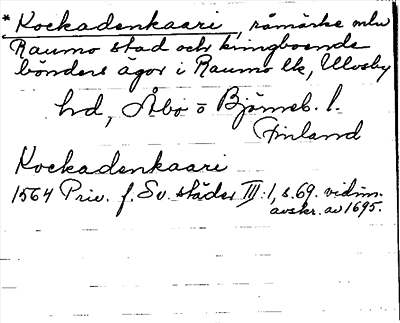 * Kockadenkaari, råmärke mln
Raumo stad och kringboende
bönders ägor i Raumo lk, Ulvsby
hd, Åbo o Björneb. l.
Finland
Kockadenkaari
1564 Priv. f. Sv. städer III:1, s. 69. vidim.
avskr. av 1695.